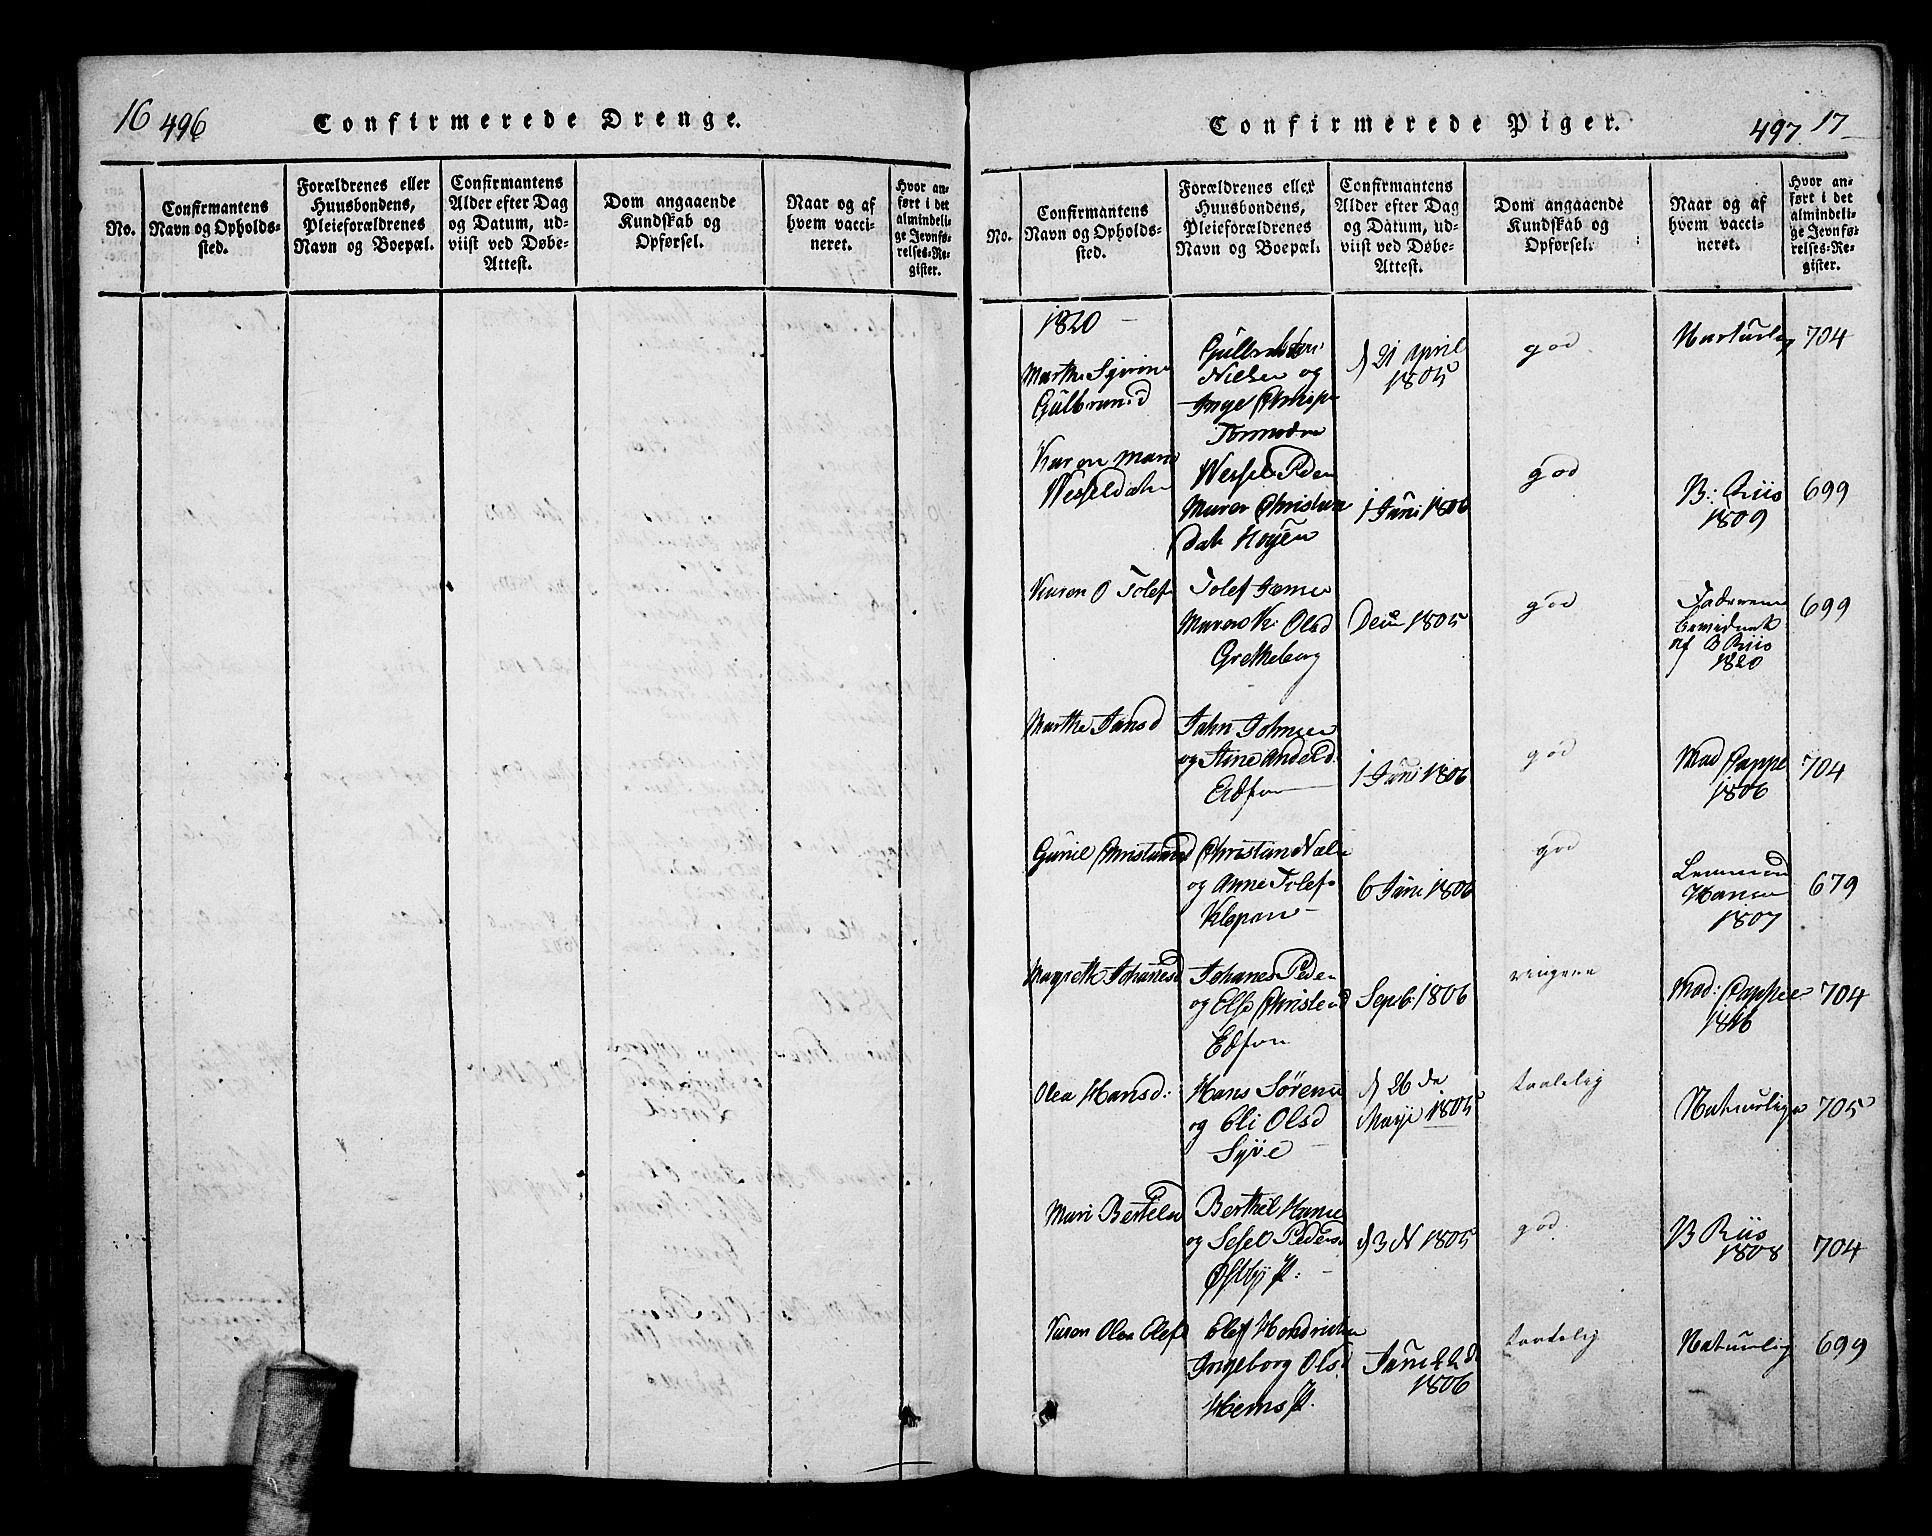 16 496
Confirmerede Drenge.
No.
Confirmantens
Navn og Opholds-
sted.
Forældrenes eller
Huusbondens,
Pleieforældrenes
Navn og Boepæl.
Confirmantens
Alder efter Dag
og Datum, ud-
viist ved Døbe-
Attest.
Dom angaaende
Kundskab og
Opførsel.
Naar og af
hvem vacci-
neret.
Hvor an-
ført i det
almindeli-
ge Jevnfø-
relses-Re-
gister.
Confirmerede Piger.
497. 17
No.
Confirmantens
Navn og Opholds-
sted.
Forældrenes eller
Huusbondens,
Pleieforældrenes
Navn og Boepæl.
Confirmantens
Alder efter Dag
og Datum, ud-
viist ved Døbe-
Attest.
Dom angaaende
Kundskab og
Opførsel.
Naar og af
hvem vacci-
neret.
Hvor an-
ført i det
almindeli-
ge Jevnfø-
relses-Re-
gister.
1820 –
Marthe
Gulbransd
Nielsen og
Inge
21 April
1805
god
Naturlig
704
Karen Marie
Wesseldatr
Wessel Peder
Maren Christian
datr
1 Juni 1806
god
B: Riis
1809
699
Karen O Tolefs
Tolef
Olsd
Gretheberg
1805
god
af B Riis
1820
699
Marthe Jansd
Jahn Johnsen
og Anne
1 Juni 1806
god
Mad Pappe
1806
704
Guriel Christiansd
Christian
og Anne Tolefs
Klopan –
6 Juni 1806
god
Hansen
1807
679
Magrethe Johannesd
Johanes Peder
og Else Christend
Septb: 1806
ringere
Mad: Pappe
704
Olea Hansd:
Hans Sørense
og Eli Olsd
Syve –
d 26 de
Maji 1805
taalelig
Naturlige
705
Mari Bertelsd
Berthel Hanse
og Sesel Peders
Østby P: –
d 3 N 1805
god
B Riis
1808
704
Karen Olea Elefs
Elef Hendrichsen
Ingeborg Olsd
Hiems P.
Juni 22 d
1806
taalelig
Naturlig
699